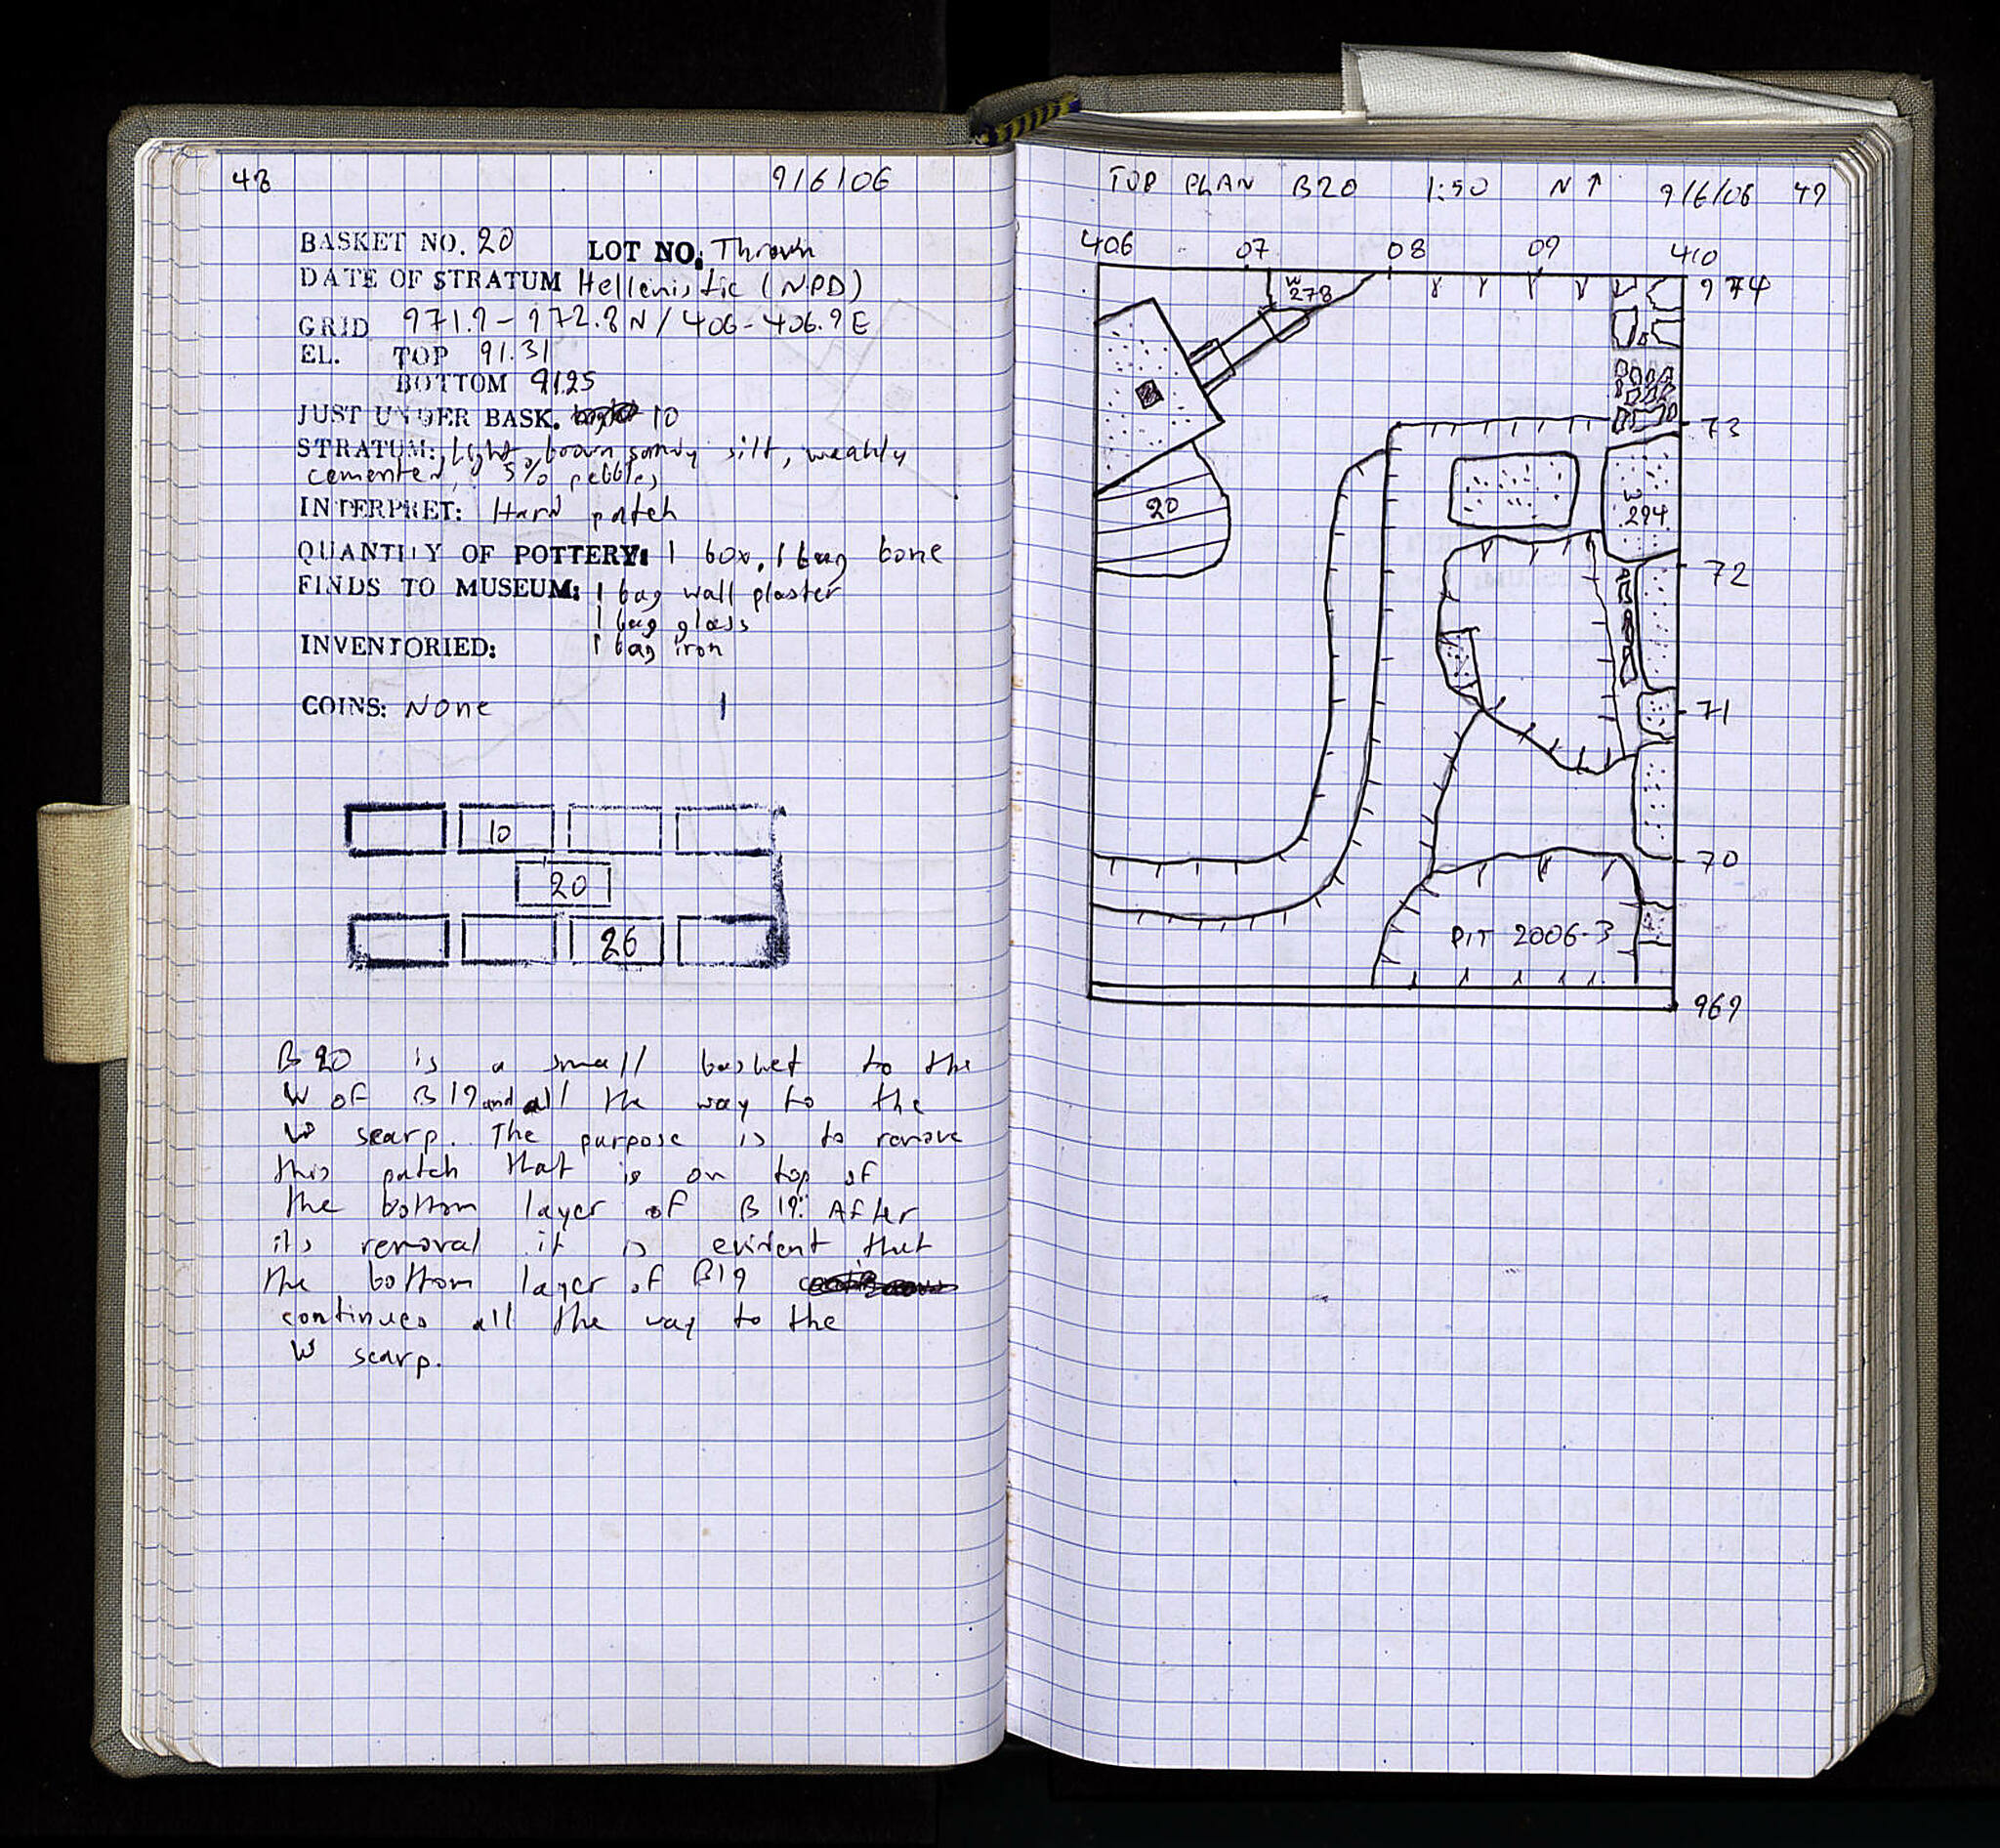 48 9/6/06
BASKET NO. 20 LOT NO. Thrown
DATE OF STRATUM Hellenistic (NPD)
GRID 971.9 - 972.8 N / 406 - 406.9 E
EL. TOP 91.31
BOTTOM 91.25
JUST UNDER BASK. 10
STRATUM: Light brown sandy silt, weakly
cemented, 5% pebbles
INTERPRET: Hard patch
QUANTITY OF POTTERY: 1 box, 1 bag bone
FINDS TO MUSEUM: 1 bag wall plaster
1 bag glass
INVENTORIED: 1 bag iron
COINS: None 1
10
20
26
B20 is a small basket to the
W of B19 and all the way to the
W scarp. The purpose is to remove
this patch that is on top of
the bottom layer of B19. After
its removal it is evident that
the bottom layer of B19
continues all the way to the
W scarp.
TOP PLAN B20 1:50 N ↑ 9/6/06 49
406 07 08 09 410
974
W
278
73
20
W
294
72
71
70
PIT 2006-3
969